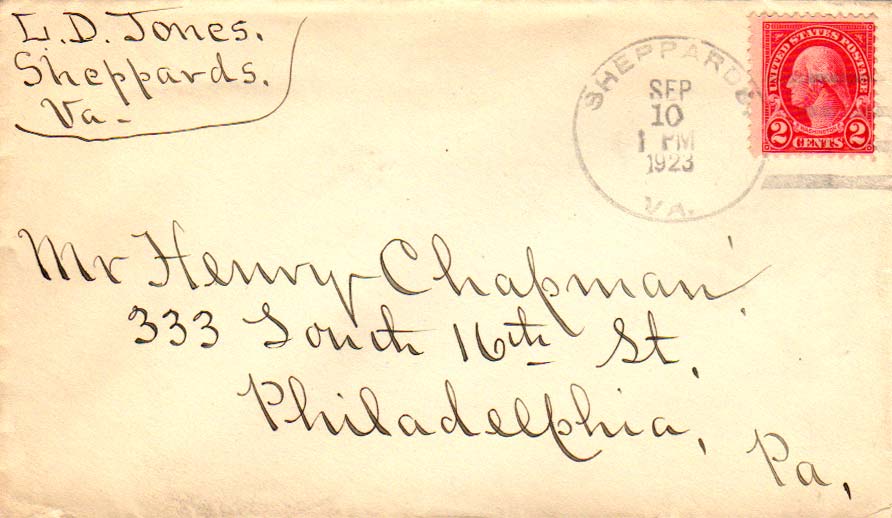 L.D. Jones.
Sheppards.
Va.
SHEPPARDS.
SEP
10
1 PM
1923
VA.
UNITED STATES POSTAGE
WASHINGTON
2 CENTS 2
Mr Henry Chapman,
333 South 16th St,
Philadelphia,
Pa,